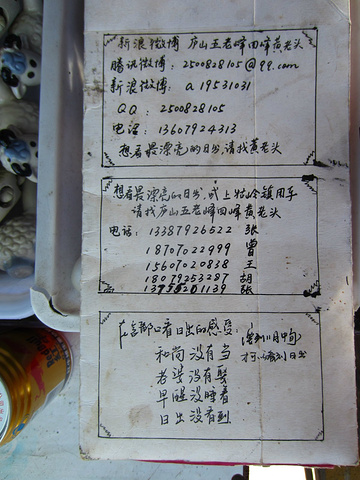 新浪微博 庐山五老峰四峰黄老头
腾讯微博: 2500828105@qq.com
新浪微博: a19531031
QQ: 2500828105
电话: 13607924313
想看最漂亮的日出,请找黄老头
想看最漂亮的日出,或上牯岭镇用车
请找庐山五老峰四峰黄老头
电话: 13387926522 张
18707022999 曾
15607020838 王
18079253287 胡
1139 张
在含鄱口看日出的感受:
和尚没有当
老婆没有娶
早醒没睡着
日出没有看到